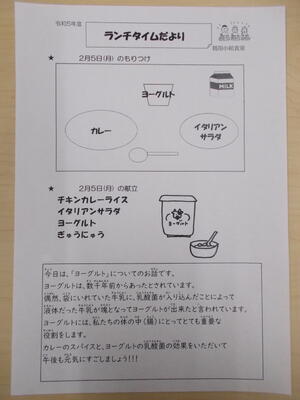 令和5年度
ランチタイムだより
鶴岡小給食室
★ 2月5日(月) のもりつけ
ヨーグルト
MILK
カレー
イタリアン
サラダ
★ 2月5日(月) の献立
チキンカレーライス
イタリアンサラダ
ヨーグルト
ぎゅうにゅう
ヨーグルト
今日は、「ヨーグルト」についてのお話です。
ヨーグルトは、数千年前からあったとされています。
偶然、袋にいれていた牛乳に、乳酸菌が入り込んだことによって
液体だった牛乳が塊となってヨーグルトが出来たと言われています。
ヨーグルトには、私たちの体の中(腸)にとってとても重要な
役割をします。
カレーのスパイスと、ヨーグルトの乳酸菌の効果をいただいて
午後も元気にすごしましょう!!!